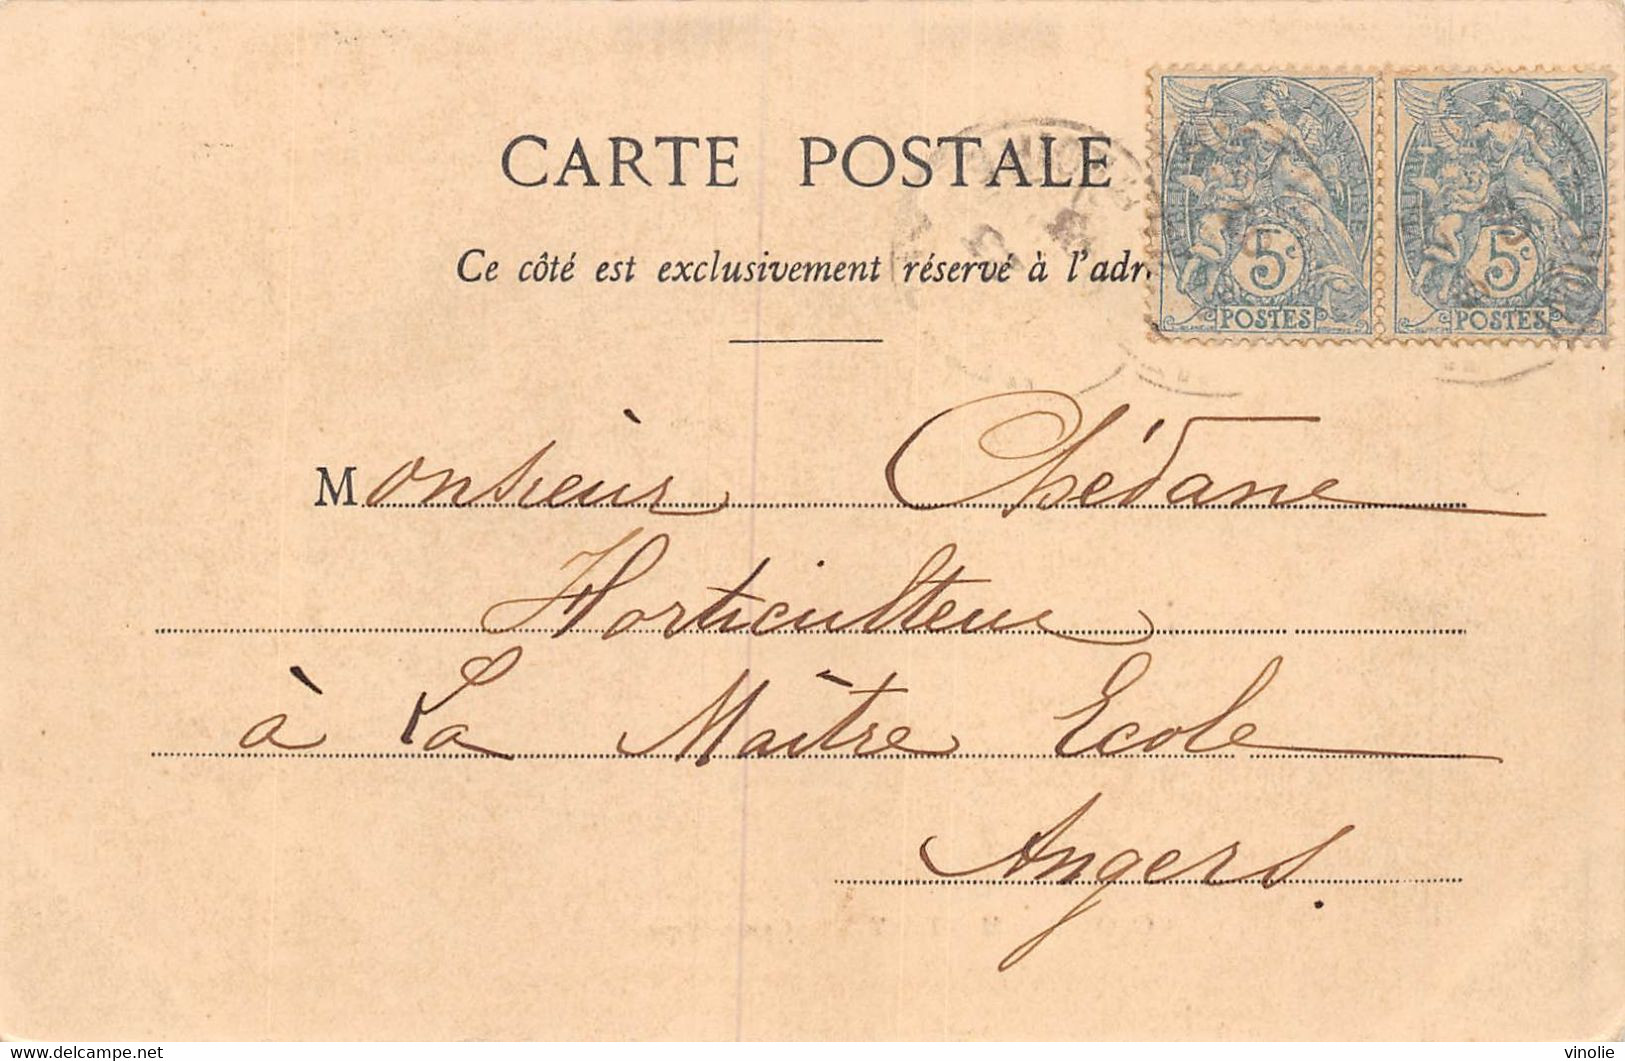 CARTE POSTALE
Ce côté est exclusivement réservé à l'adr
5c
POSTES
5c
POSTES
Monsieur Chédane
Horticulteur
à La Maître Ecole
Angers.
delcampe.net
vinolie